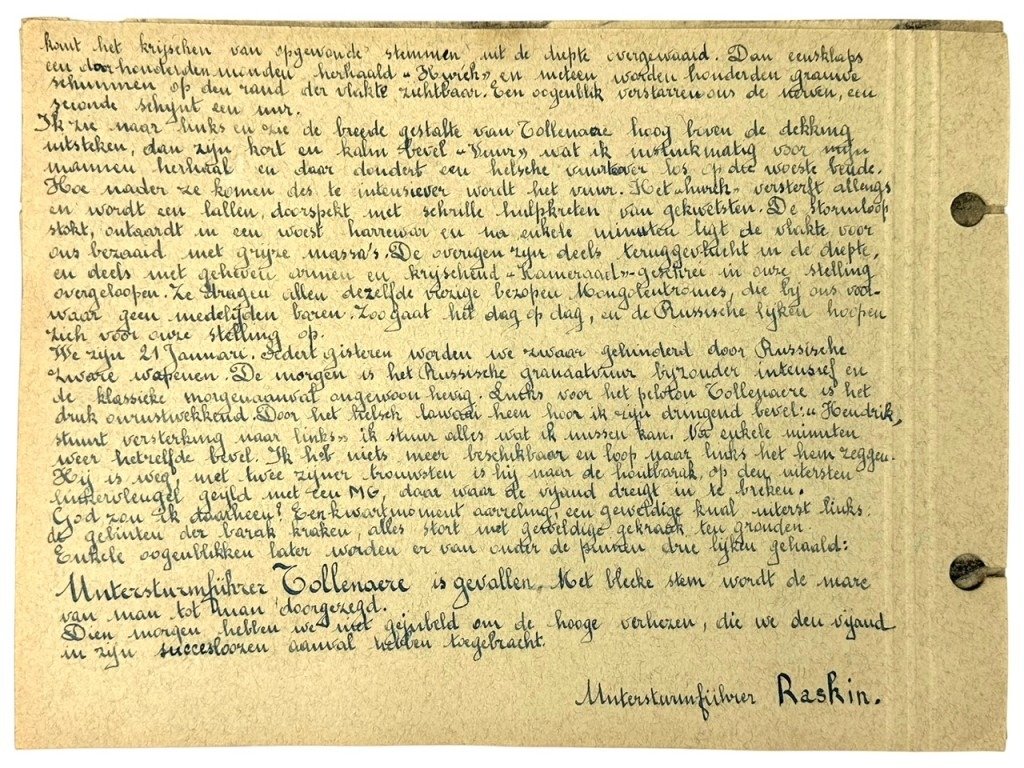 komt het krijschen van opgewonde stemmen uit de diepte overgewaaid. Dan eensklaps
een door honderden monden herhaald "Hurek", en meteen worden honderden grauwe
schimmen op den rand der vlakte zichtbaar. Een oogenblik verstarren ons de nerven, een
seconde schijnt een uur.
Ik zie naar links en zie de breede gestalte van Tollenaere hoog boven de dekking
uitsteken, dan zijn kort en kalm bevel "Vuur" wat ik instinkmatig voor mijn
mannen herhaal en daar dondert een helsche vuur over los op die woeste bende.
Hoe nader ze komen des te intensiever wordt het vuur. Het "hurek" versterft allengs
en wordt een lallen, doorspekt met schrille hulpkreten van gekwetsten. De stormloop
stokt, ontaardt in een woest harrewar en na enkele minuten ligt de vlakte voor
ons bezaaid met grijze massa's. De overigen zijn deels teruggevlucht in de diepte,
en deels met geheven armen en krijschend "Kameraad"-geschrei in onze stelling
overgeloopen. Ze dragen allen dezelfde viezige bezopen Mongolentronies, die bij ons voor-
waar geen medelijden baren. Zoo gaat het dag op dag, en de Russische lijken hoopen
zich voor onze stelling op.
We zijn 21 Januari. Sedert gisteren worden we zwaar gehinderd door Russische
zware wapenen. De morgen is het Russische granaatvuur bijzonder intensief en
de klassieke morgenaanval ongewoon hevig. Links voor het peloton Tollenaere is het
druk onrustwekkend. Door het helsch lawaai heen hoor ik zijn dringend bevel: "Hendrik,
stuurt versterking naar links" ik stuur alles wat ik missen kan. Na enkele minuten
weer hetzelfde bevel. Ik heb niets meer beschikbaar en loop naar links het hem zeggen.
Hij is weg, met twee zijner trouwsten is hij naar de houtbarak, op den uitersten
linkervleugel geijld met een MG, daar waar de vijand dreigt in te breken.
God zou ik daarheen? Een kwart moment aarzeling, een geweldige knal uiterst links:
de gebinten der barak kraken, alles stort met geweldige gekraak ten gronden.
Enkele oogenblikken later worden er van onder de puinen drie lijken gehaald:
Untersturmführer Tollenaere is gevallen. Met bleeke stem wordt de mare
van man tot man doorgezegd.
Dien morgen hebben we niet gejubeld om de hooge verliezen, die we den vijand
in zijn succesloozen aanval hebben toegebracht.
Untersturmführer Raskin.